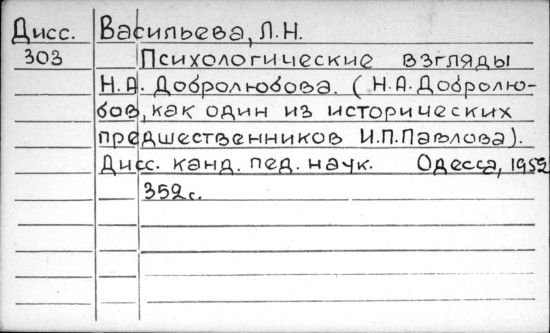 Дисс. Васильева, Л.Н.
303 Психологические взгляды
Н.А. Добролюбова. (Н.А.Добролю-
бов, как один из исторических
предшественников И.П.Павлова).
Дисс. канд. пед. наук. Одесса, 1952
352с.